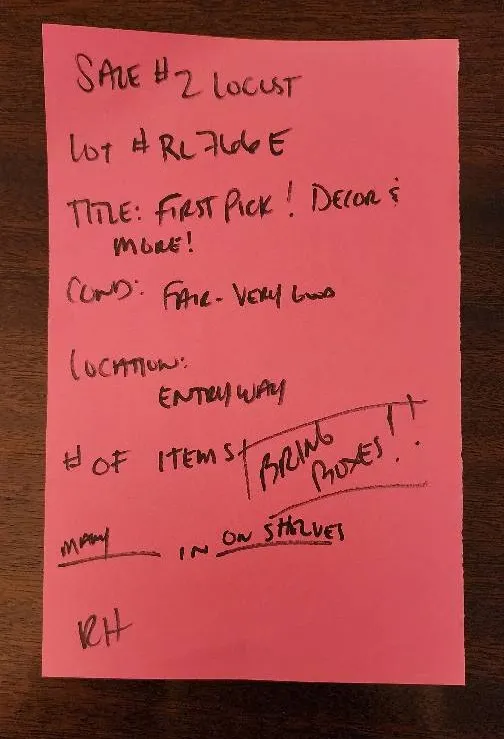 SALE # 2 LOCUST
LOT # RL766E
TITLE: FIRST PICK! DECOR &
MORE!
COND: FAIR - VERY GOOD
LOCATION:
ENTRYWAY
# OF ITEMS
BRING
BOXES!!
MANY IN ON SHELVES
RH